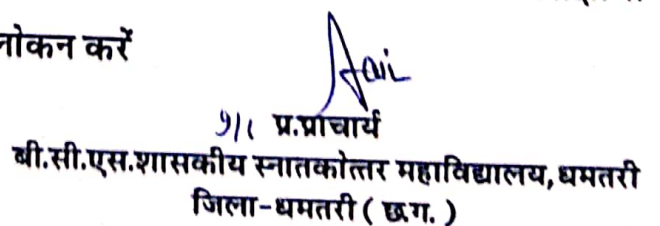 लोकन करें
प्र.प्राचार्य
बी.सी.एस.शासकीय स्नातकोत्तर महाविद्यालय,धमतरी
जिला-धमतरी ( छ.ग. )